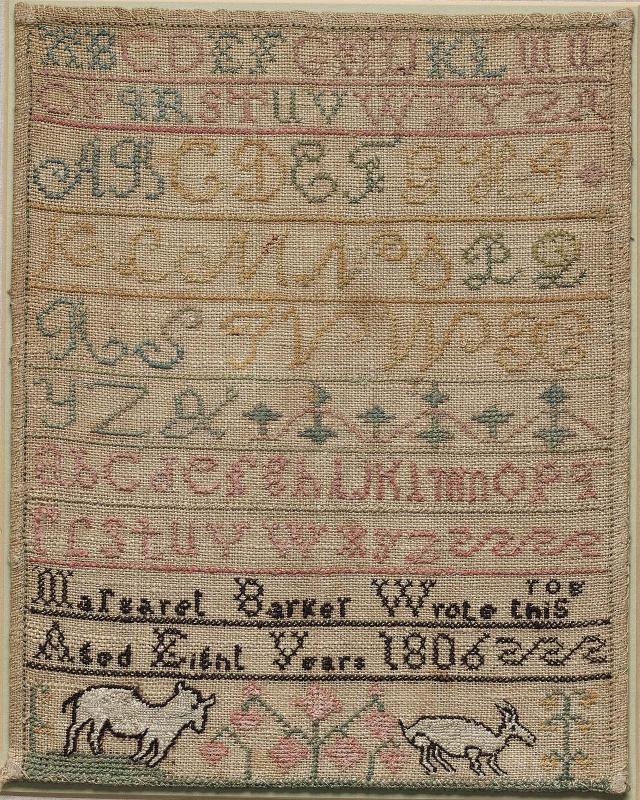 A B C D E F G H I J K L M N
O P q R S T U V W X Y Z
A B C D E F G H I
K L M N O P Q
R S T V W X
Y Z &
a b c d e f g h i j k l m n o p q
r ſ s t u v w x y z
Margaret Barker Wrote this
Aged Eight Years 1806